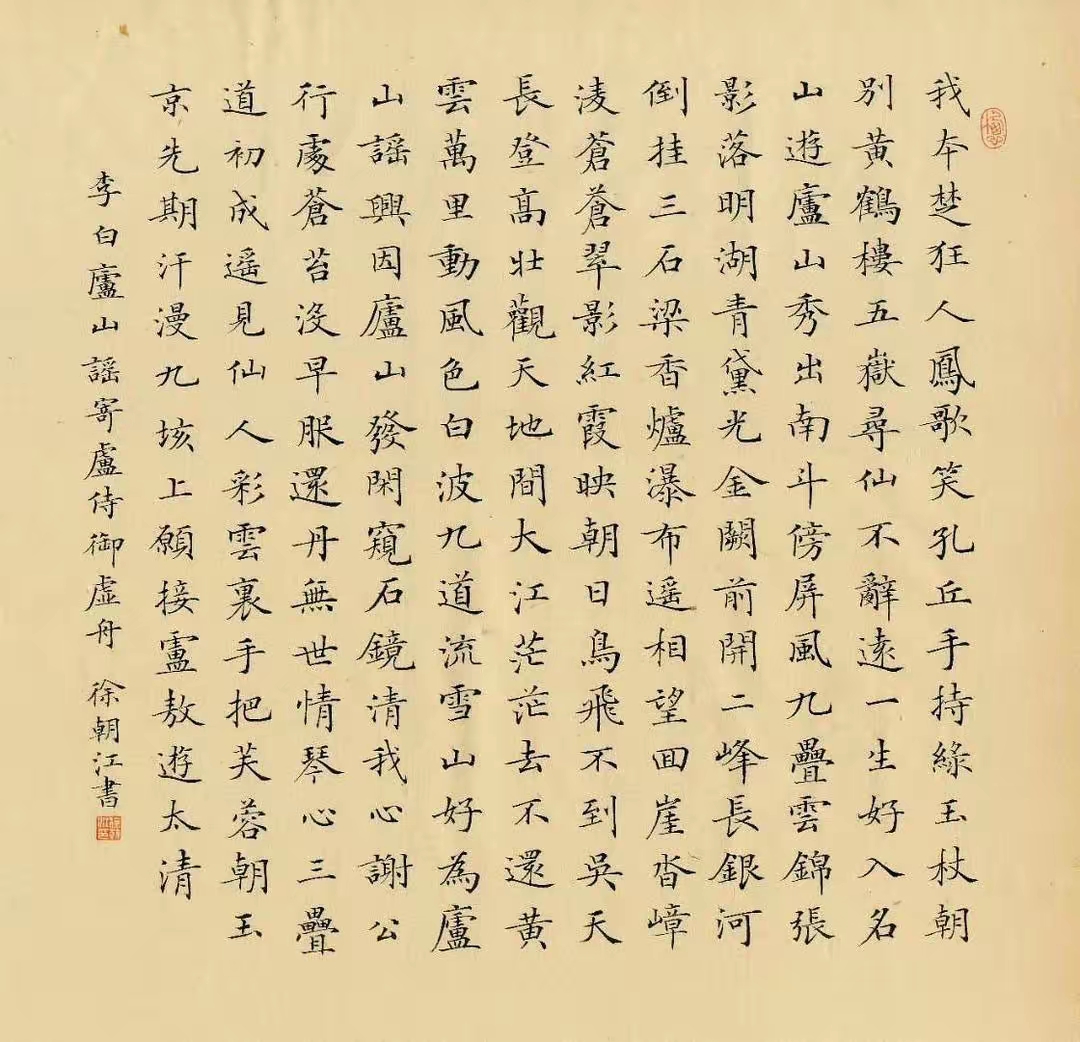 我本楚狂人鳳歌笑孔丘手持綠玉杖朝
別黃鶴樓五嶽尋仙不辭遠一生好入名
山遊廬山秀出南斗傍屏風九疊雲錦張
影落明湖青黛光金闕前開二峰長銀河
倒挂三石梁香爐瀑布遥相望回崖沓嶂
淩蒼蒼翠影紅霞映朝日鳥飛不到吳天
長登高壯觀天地間大江茫茫去不還黃
雲萬里動風色白波九道流雪山好為廬
山謠興因廬山發閑窺石鏡清我心謝公
行處蒼苔沒早服還丹無世情琴心三疊
道初成遥見仙人彩雲裏手把芙蓉朝玉
京先期汗漫九垓上願接盧敖遊太清
李白廬山謠寄盧侍御虛舟 徐朝江書